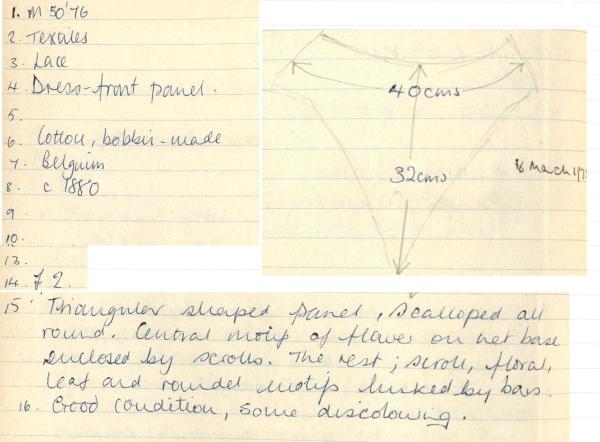 1. M 50'76
2. Textiles
3. Lace
4. Dress-front panel.
5.
6. Cotton, bobbin-made
7. Belguim
8. c 1880
9
10.
13.
14. £2.
40cms
32cms
March
15 Triangular shaped panel, scalloped all
round. Central motif of flower on net base
enclosed by scrolls. The rest; scroll, floral,
leaf and roundel motifs linked by bars.
16. Good condition, some discolouring.